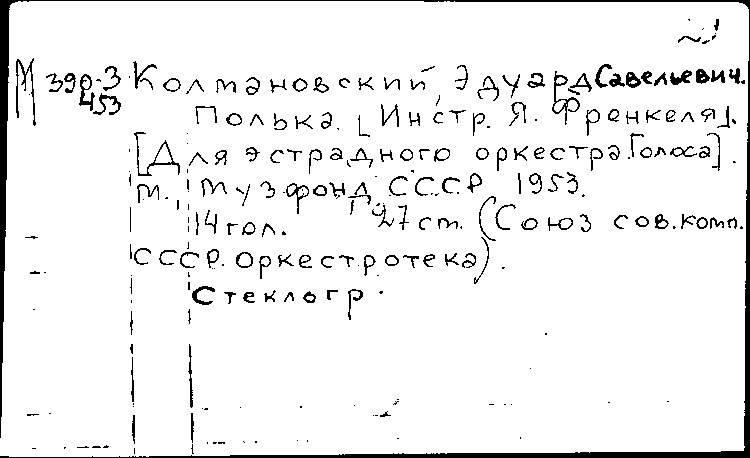 М 390-3 Колмановский, Эдуард Савельевич.
453
Полька. [Инстр. Я. Френкеля].
[Для эстрадного оркестра. Голоса].
М., Музфонд СССР, 1953.
14 гол. 27 cm. (Союз сов. комп.
СССР. Оркестротека).
Стеклогр.